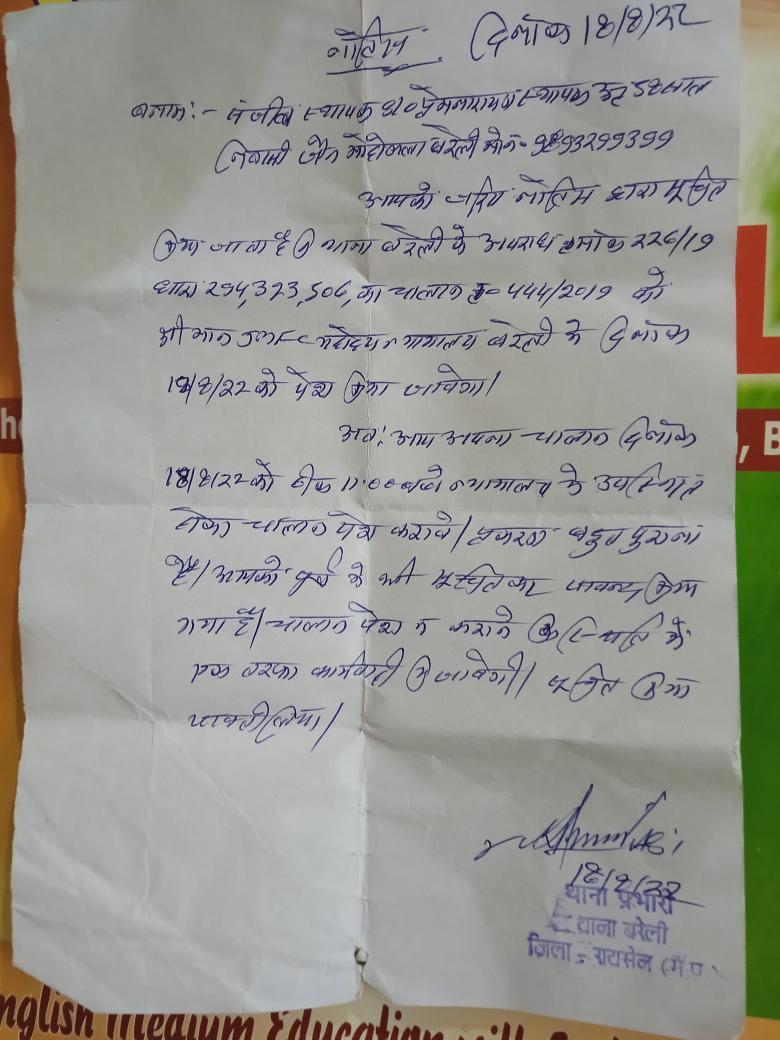 नोटिस दिनाँक 18/8/22
बनाम:- संजीव स्थापक S/o प्रेमनारायण स्थापक उम्र साल
निवासी जैन मोहल्ला बरेली मो.न.- 9893299399
आपको जरिए नोटिस द्वारा सूचित
किया जाता है कि थाना बरेली के अपराध क्रमांक 226/19
धारा 294,323,506, का चालान क्र- 444/2019 को
श्रीमान JMFC महोदय न्यायालय बरेली में दिनाँक
18/8/22 को पेश किया जावेगा।
अतः आप अपना चालान दिनाँक
18/8/22 को ठीक 11:00 बजे न्यायालय में उपस्थित
होकर चालान पेश करावे। प्रकरण बहुत पुराना
है। आपको पूर्व में भी सूचित कर पाबन्द किया
गया है। चालान पेश न कराने की स्थिति में
एक तरफा कार्यवाही की जावेगी। सूचित किया
पावती लिया।
18/8/22
थाना प्रभारी
थाना बरेली
जिला - रायसेन (म.प्र.
English Medium Education will
, B